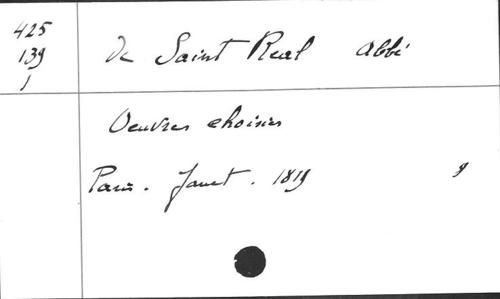 425
139
1
de Saint Real Abbé
Oeuvres choisies
Paris. Janet. 1819 9